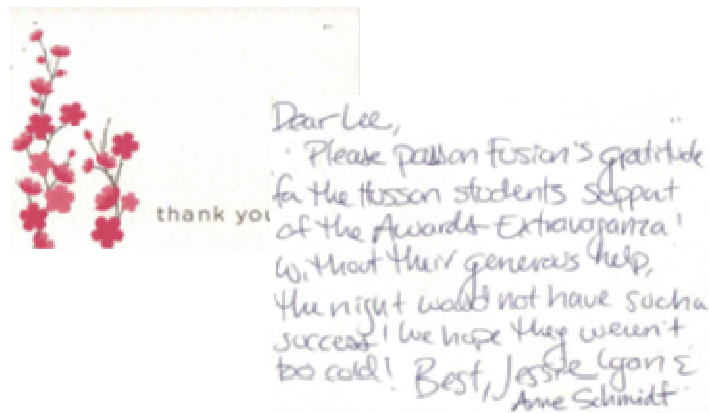 thank you
Dear Lee,
Please pass on Fusion's gratitude
for the Husson students support
of the Awards Extravaganza!
Without their generous help,
the night would not have such a
success! We hope they weren't
too cold! Best, Jessie Lyon &
Anne Schmidt